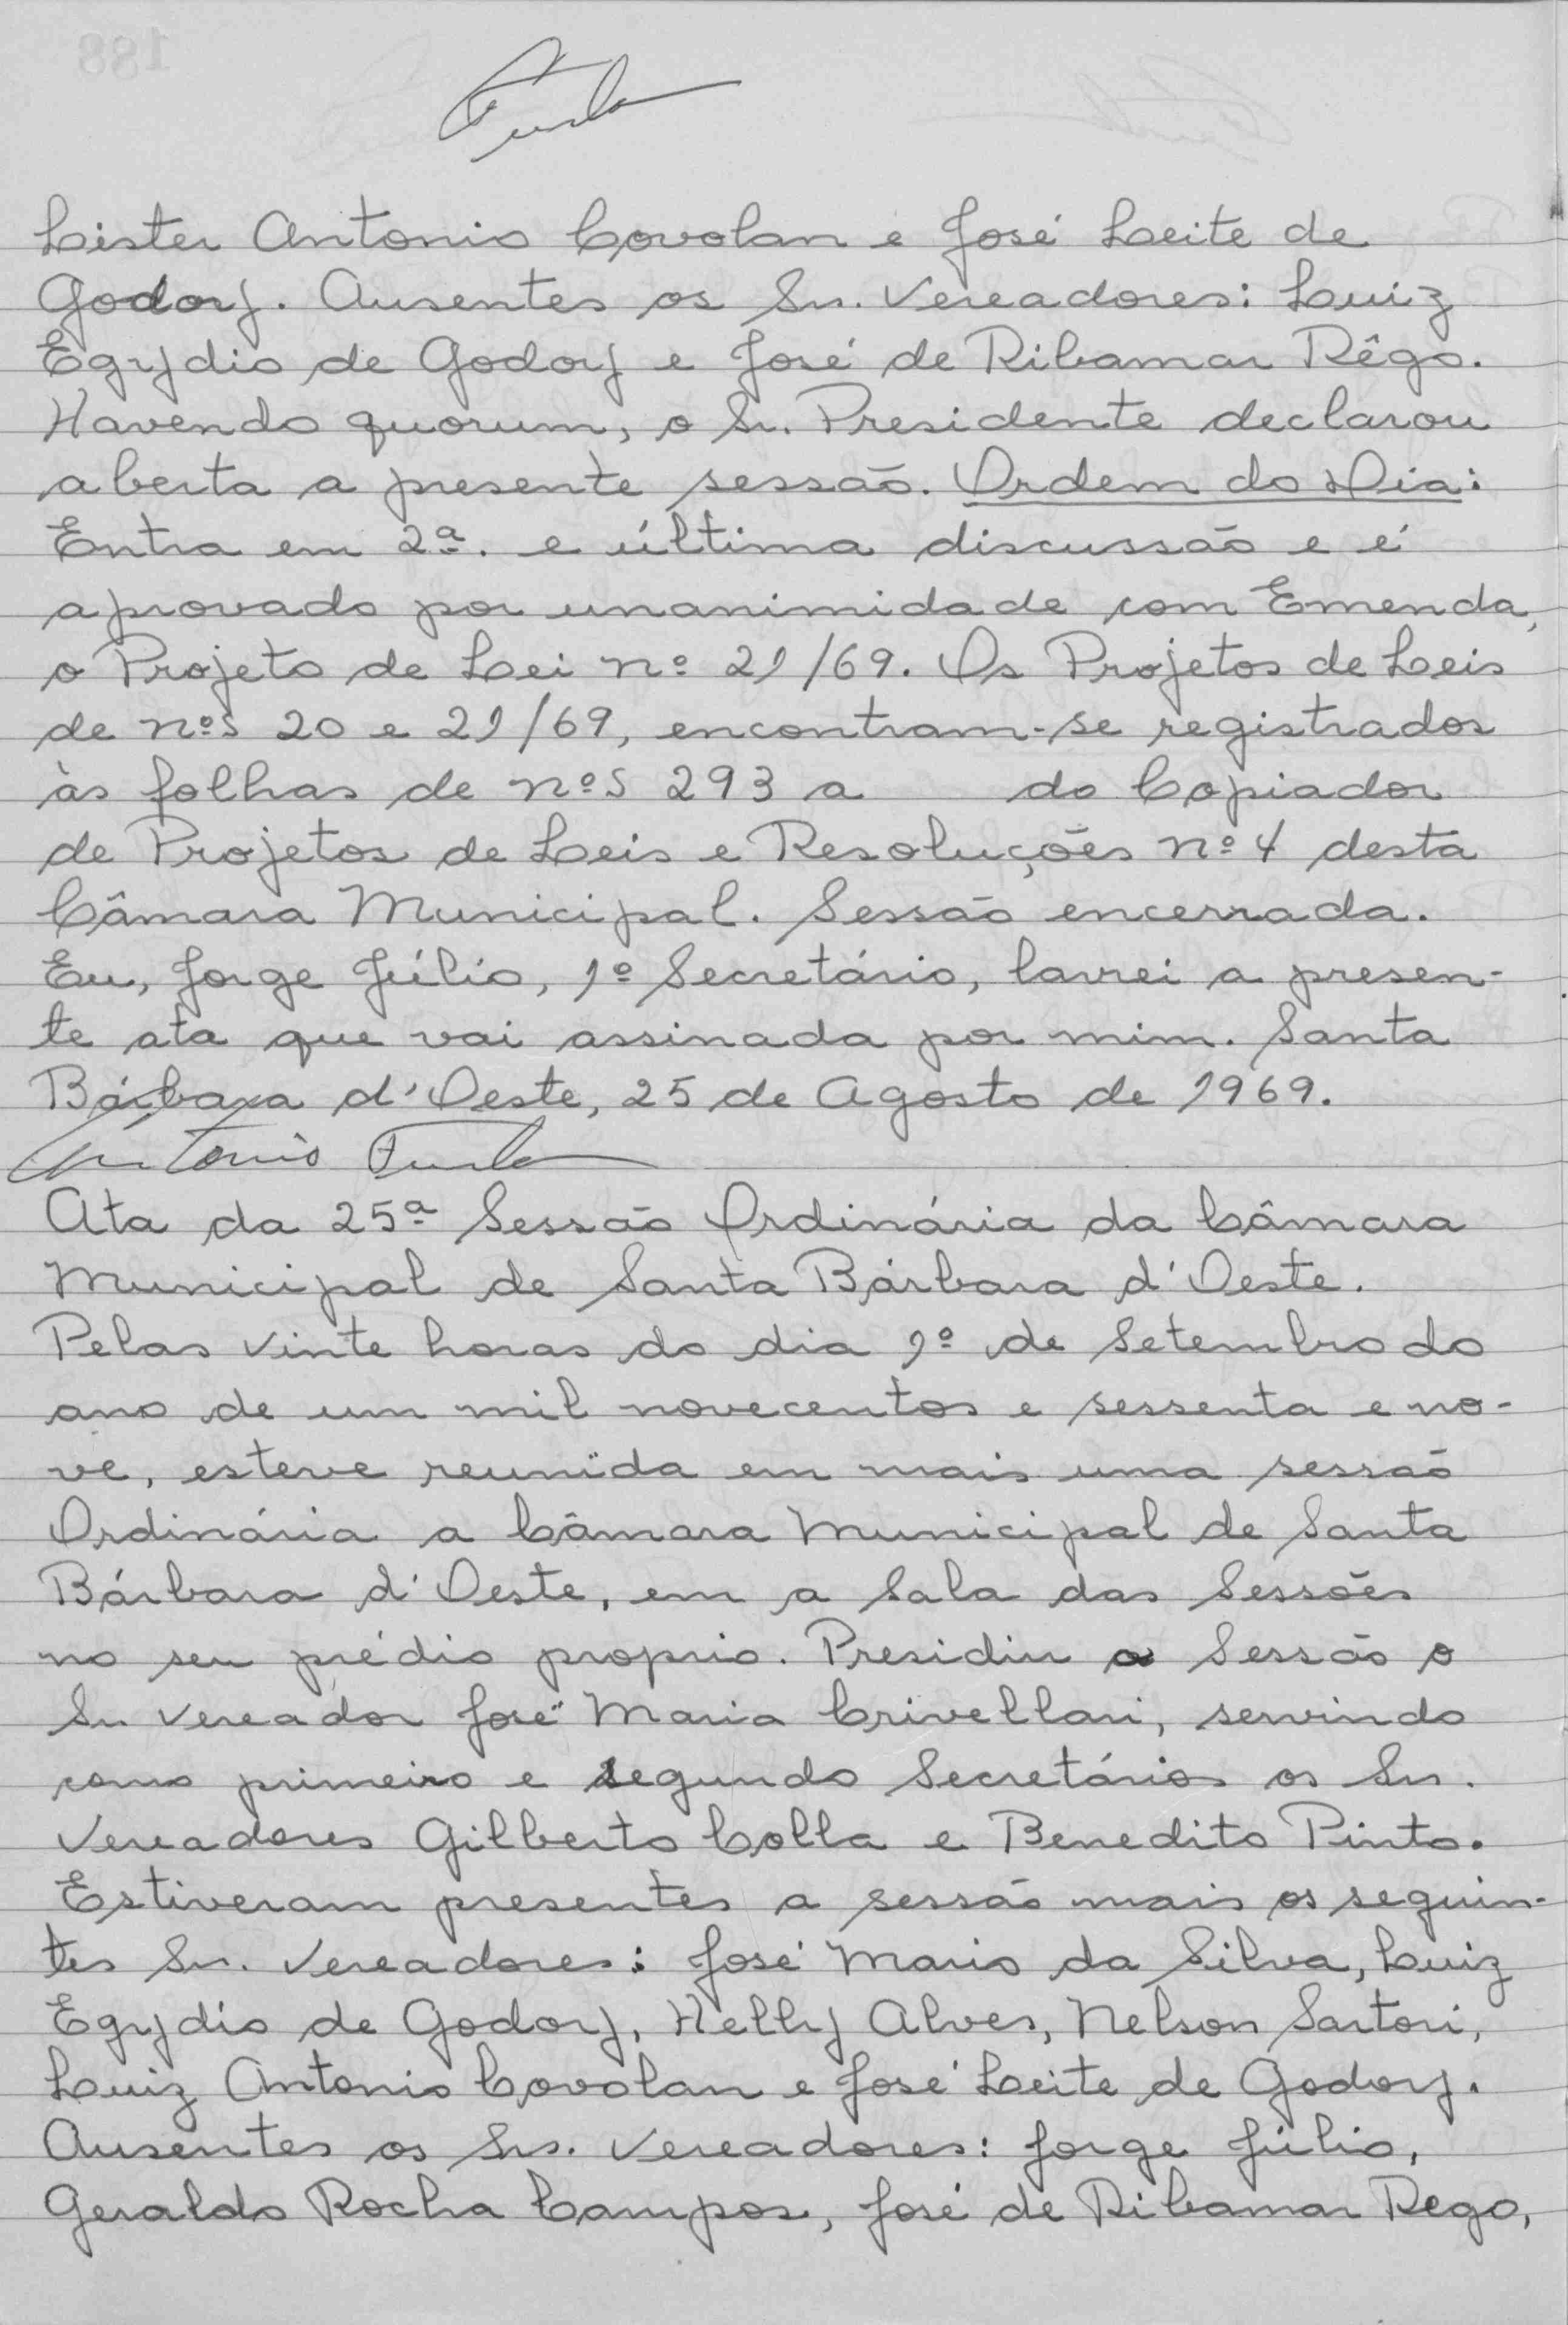 Furlan
Lister Antonio Covolan e José Leite de
Godoy. Ausentes os Srs. Vereadores: Luiz
Egydio de Godoy e José de Ribamar Rêgo.
Havendo quorum, o Sr. Presidente declarou
aberta a presente sessão. Ordem do Dia:
Entra em 2ª. e última discussão e é
aprovado por unanimidade com Emenda,
o Projeto de Lei nº 21/69. Os Projetos de Leis
de nºs 20 e 21/69, encontram-se registrados
às folhas de nºs 293 a do Copiador
de Projetos de Leis e Resoluções nº 4 desta
Câmara Municipal. Sessão encerrada.
Eu, Jorge Júlio, 1º Secretário, lavrei a presen-
te ata que vai assinada por mim. Santa
Bárbara d'Oeste, 25 de Agosto de 1969.
Antonio Furlan
Ata da 25ª Sessão Ordinária da Câmara
Municipal de Santa Bárbara d'Oeste.
Pelas vinte horas do dia 1º de Setembro do
ano de um mil novecentos e sessenta e no-
ve, esteve reunida em mais uma sessão
Ordinária a Câmara Municipal de Santa
Bárbara d'Oeste, em a Sala das Sessões
no seu prédio proprio. Presidiu a Sessão o
Sr Vereador José Maria Crivellari, servindo
como primeiro e segundo Secretários os Srs.
Vereadores Gilberto Colla e Benedito Pinto.
Estiveram presentes a sessão mais os seguin-
tes Srs. Vereadores: José Mario da Silva, Luiz
Egydio de Godoy, Helly Alves, Nelson Sartori,
Luiz Antonio Covolan e José Leite de Godoy.
Ausentes os Srs. Vereadores: Jorge Júlio,
Geraldo Rocha Campos, José de Ribamar Rego,